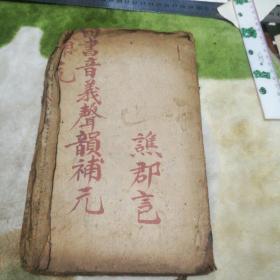 書音義聲韻補元
譙郡言